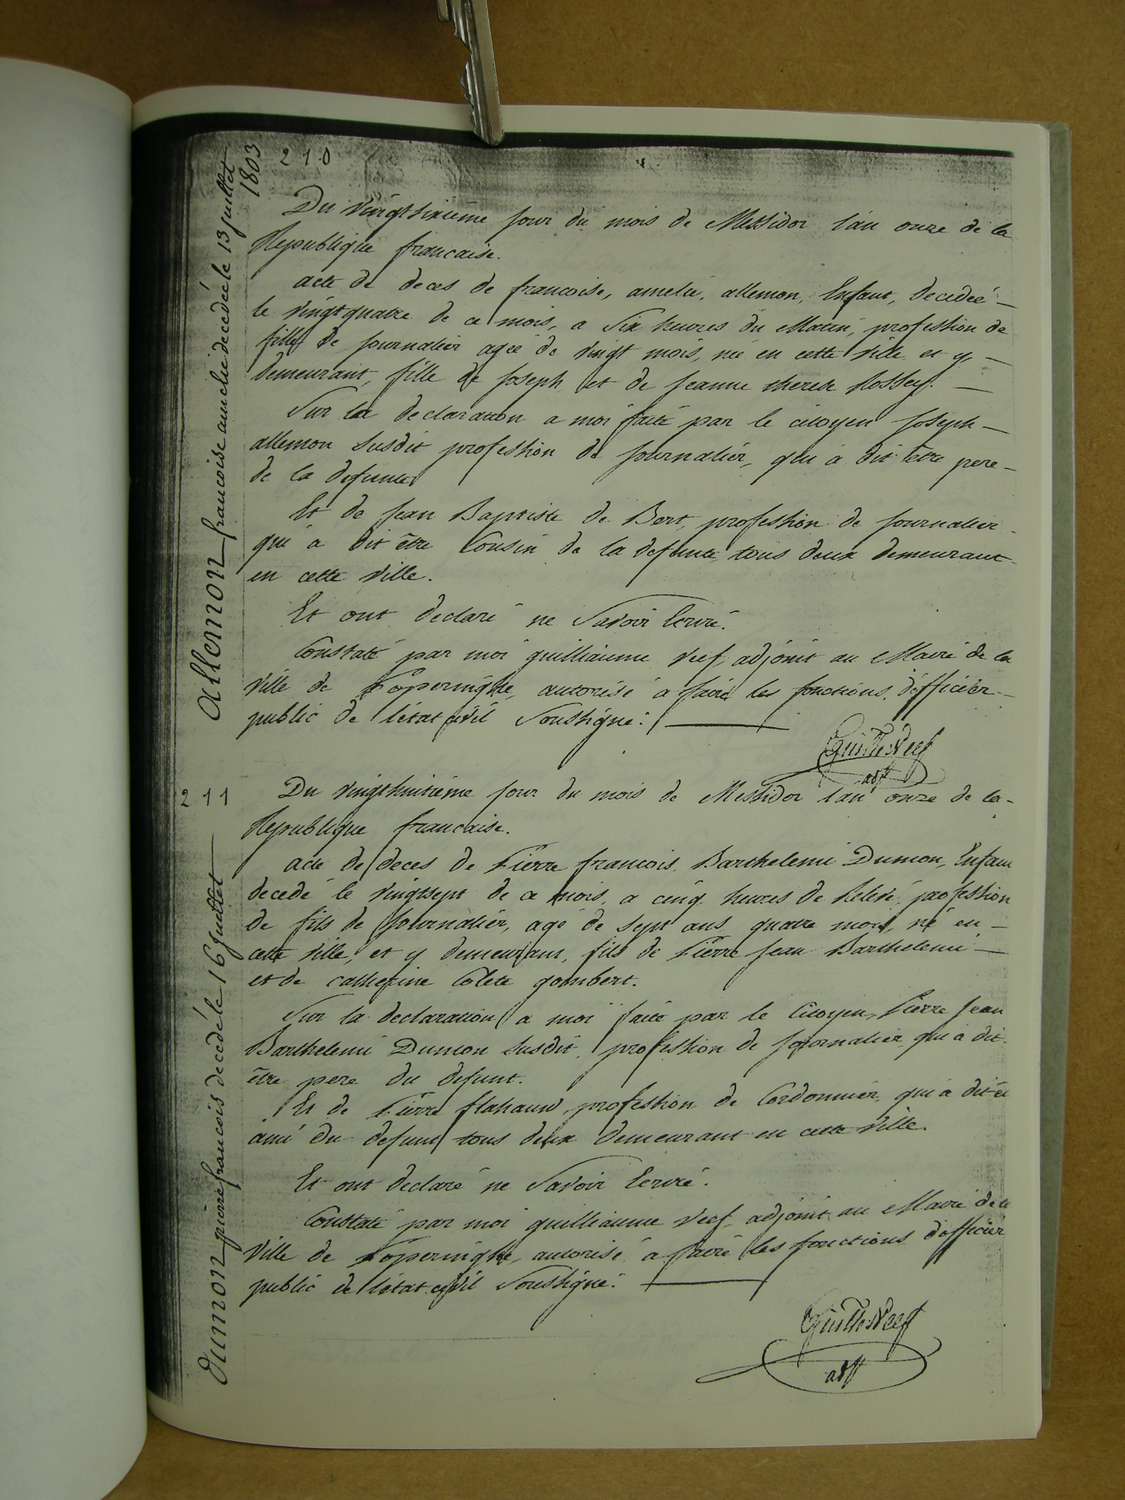 210
1803
Allemon francoise amelie decedée le 13 juillet
Du vingtsixieme jour du mois de Messidor l'an onze de la
Republique francaise.
acte de deces de francoise, amelie, allemon, Enfant, decedeé
le vingtquatre de ce mois, a Six heures du Matin, profession de
fille de journalier agee de vingt mois, née en cette ville et y
demeurant, fille de Joseph et de Jeanne therese
Sur la declaration a moi faite par le citoyen Joseph
allemon susdit profession de journalier, qui a dit être pere
de la defunte
Et de Jean Baptiste de Bert, profession de journalier
qui a dit être Cousin de la defunte, tous deux demeurant
en cette ville.
Et ont declaré ne Savoir Ecrire.
Constaté par moi guilliaume Neef, adjoint au Maire de la
ville de Poperinghe, autorisé a faire les fonctions d'officier
public de l'état civil Soussigné.
Guill Neef
adjt
211
Dumon pierre francois decedé le 16 juillet
Du vingthuitieme jour du mois de Messidor l'an onze de la
Republique francaise.
acte de deces de Pierre francois Barthelemi Dumon, Enfant
decedé le vingtsept de ce mois, a cinq heures de Relevé, profession
de fils de journalier, agé de sept ans quatre mois, né en
cette ville, et y demeurant, fils de Pierre Jean Barthelemi
et de catherine Colete gombert.
Sur la declaration a moi faite par le Citoyen, Pierre Jean
Barthelemi Dumon susdit, profession de journalier qui a dit
être pere du defunt.
Et de Pierre flahauw, profession de Cordonnier, qui a dit
ami du defunt tous deux demeurant en cette ville.
Et ont declaré ne Savoir Ecrire.
Constaté par moi guilliaume Neef, adjoint au Maire de la
ville de Poperinghe, autorisé a faire les fonctions d'officier
public de l'état civil Soussigné.
Guill Neef
adjt